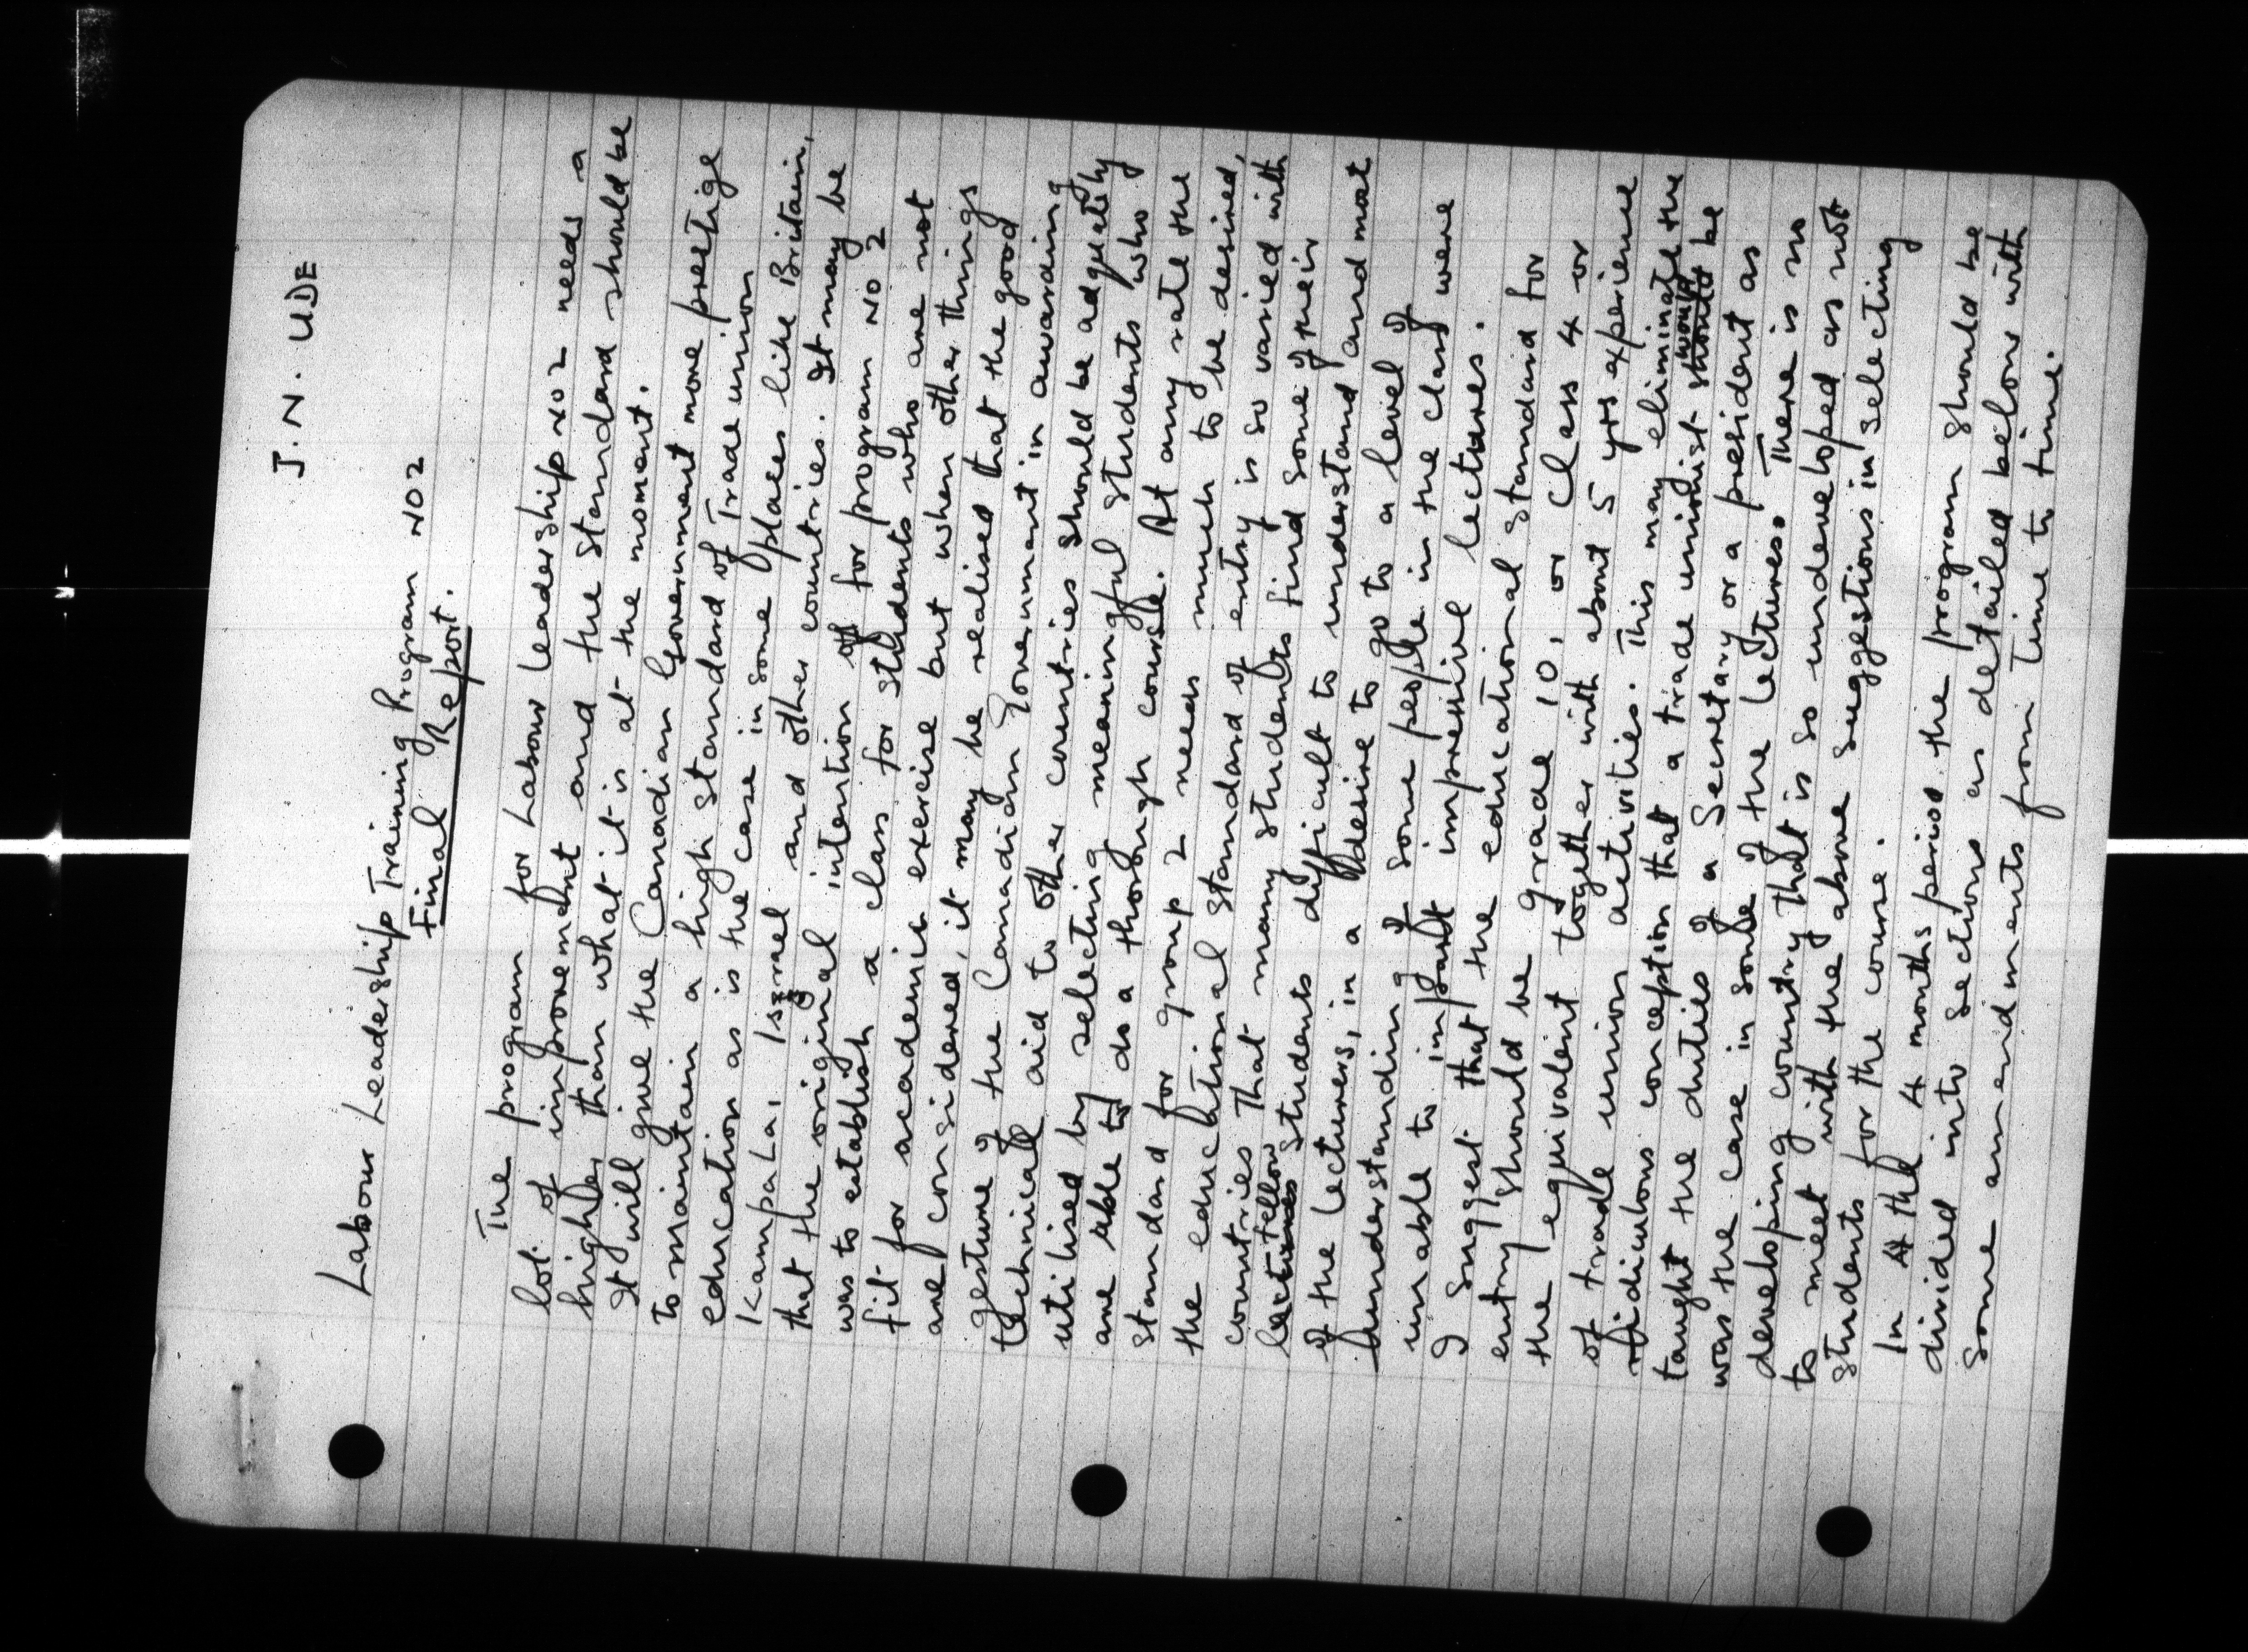 J. N. UDE
Labour Leadership Training Program No 2
Final Report.
The program for Labour Leadership No 2 needs a
lot of improvement and the standard should be
higher than what it is at the moment.
It will give the Canadian Government more prestige
to maintain a high standard of Trade union
education as is the case in some places like Britain,
Kampala, Israel and other countries. It may be
that the original intention of for program No 2
was to establish a class for students who are not
fit for academic exercise but when other things
are considered, it may be realised that the good
gesture of the Canadian Government in awarding
technical aid to other countries should be adquately
utilised by selecting meaningful students who
are able to do a thorough course. At any rate the
standard for group 2 needs much to be desired,
the educational standard of entry is so varied with
countries that many students find some of their
lectures fellow students difficult to understand and most
of the lecturers, in a desire to go to a level of
understanding of some people in the class were
unable to impart impressive lectures.
I suggest that the educational standard for
entry should be grade 10, or Class 4 or
the equivalent together with about 5 yrs experience
of trade union activities. This may eliminate the
ridiculous conception that a trade unionist should would be
taught the duties of a Secretary or a president as
was the case in some of the lectures. There is no
developing country that is so undeveloped as not
to meet with the above suggestions in selecting
students for the course.
In 4 the 4 months period the program should be
divided into sections as detailed below with
some amendments from time to time.